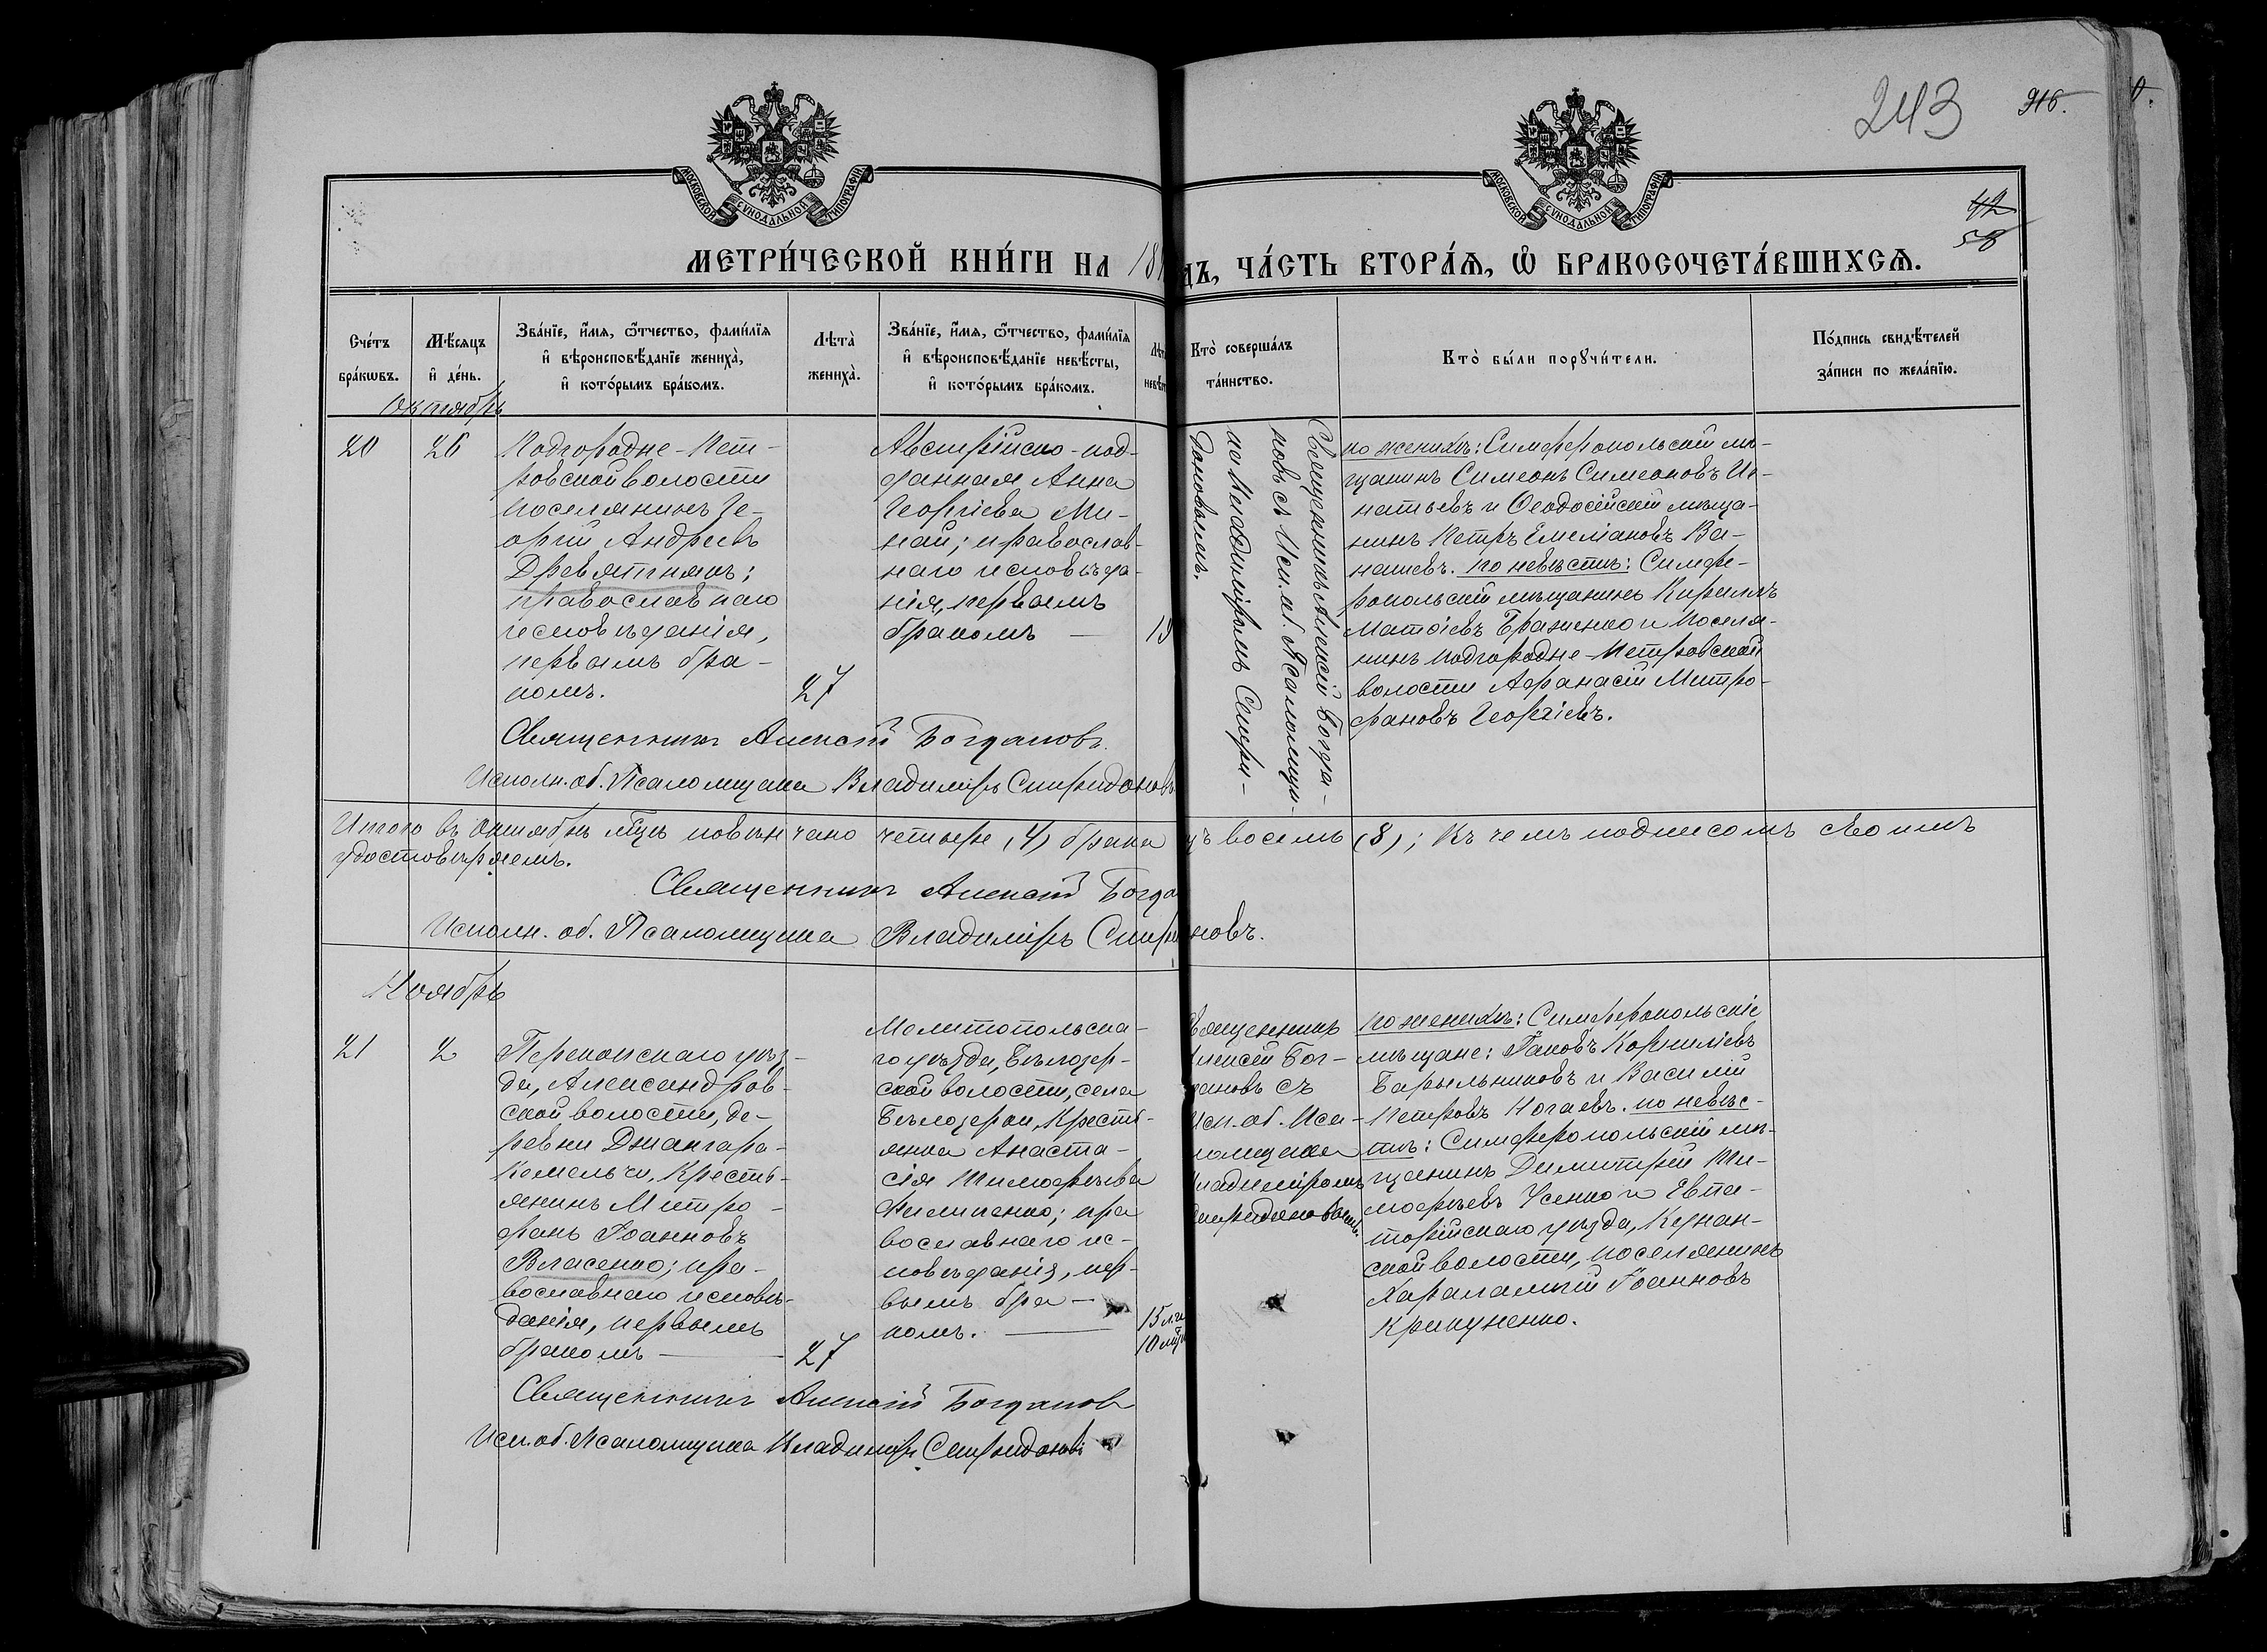 243
916.
42
58
МОСКОВСКОЙ СѴНОДАЛЬНОЙ ТИПОГРАФІИ
МОСКОВСКОЙ СѴНОДАЛЬНОЙ ТИПОГРАФІИ
МЕТРИ́ЧЕСКОЙ КНИ́ГИ НА 18
ДЪ, ЧА́СТЬ ВТОРА́Ѧ, Ѽ БРАКОСОЧЕТА́ВШИХСѦ.
Сче́тъ
бра́кѡвъ.
Мѣ́сяцъ
и҆ де́нь.
Зва́нїе, и҆́мя, ѻ҆́тчество, фами́лїя
и҆ вѣроисповѣ́данїе жениха̀,
и҆ кото́рымъ бра́комъ.
Лѣта̀
жениха̀.
Зва́нїе, и҆́мя, ѻ҆́тчество, фами́лїя
и҆ вѣроисповѣ́данїе невѣ́сты,
и҆ кото́рымъ бра́комъ.
Кто̀ соверша́лъ
та́инство.
Кто̀ бы́ли порꙋчи́тели.
По́дпись свидѣ́телей
за́писи по жела́нїю.
Октябрь
20
26
Подгородне-Пет-
ровской волости
поселянинъ Ге-
оргій Андреевъ
Древятнякъ;
православнаго
исповѣданія,
первымъ бра-
комъ.
27
Австрійско-под-
данная Анна
Георгіева Ми-
най; православ-
наго исповѣда-
нія, первымъ
бракомъ —
19
Священникъ Алексій Богда-
новъ съ Исп. об. Псаломщи-
ка Владиміромъ Спири-
доновымъ.
по женихѣ: Симферопольскій мѣ-
щанинъ Симеонъ Симеоновъ Иг-
натьевъ и Ѳеодосійскій мѣща-
нинъ Петръ Емеліановъ Ва-
кашевъ. по невѣстѣ: Симфе-
ропольскій мѣщанинъ Кириллъ
Матѳіевъ Браженко и поселя-
нинъ Подгородне-Петровской
волости Афанасій Митро-
фановъ Георгіевъ.
Священникъ Алексій Богдановъ.
Исполн. об. Псаломщика Владиміръ Спиридоновъ
Итого въ Октябрѣ мѣцѣ повѣнчано четыре (4) брака
цъ восемь (8); въ чемъ подписомъ своимъ
удостовѣряемъ.
Священникъ Алексій Богда
Исполн. об. Псаломщика Владиміръ Спири
новъ.
Ноябрь
21
2
Перекопскаго уѣз-
да, Александров-
ской волости, де-
ревни Джангара-
Кемельчи, Кресть-
янинъ Митро-
фанъ Іоанновъ
Власенко; пра-
вославнаго исповѣ-
данія, первымъ
бракомъ —
27
Мелитопольска-
го уѣзда, Бѣлозер-
ской волости, села
Бѣлозерки, Кресть-
янка Анаста-
сія Тимофѣева
Филипенко; пра
вославнаго ис-
повѣданія, пер-
вымъ бра-
комъ. —
15 л. и
10 мѣц
вященникъ
лексій Бог-
дановъ съ
Исп. об. Пса-
ломщика
ладиміромъ
Спиридоновымъ.
по женихѣ: Симферопольскіе
мѣщане: Іаковъ Корниліевъ
Барыльниковъ и Василій
Петровъ Ногаевъ. по невѣс-
тѣ: Симферопольскій мѣ-
щанинъ Димитрій Ти-
мофѣевъ Усенко и Евпа-
торійскаго уѣзда, Курман-
ской волости, поселянинъ
Харалампій Іоанновъ
Крикуненко.
Священникъ Алексій Богдановъ
Исп. об. Псаломщика Владиміръ Спиридоновъ